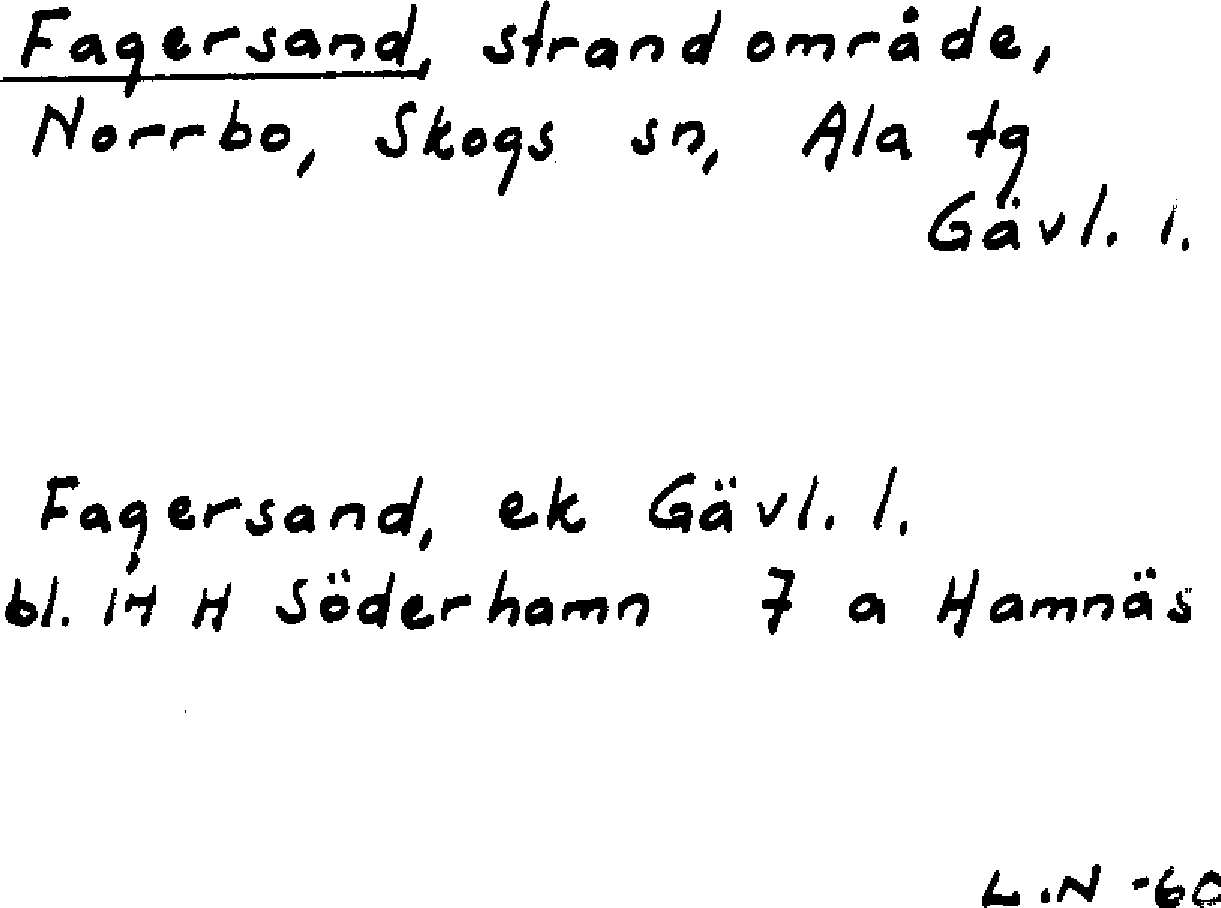 Fagersand, strandområde,
Norrbo, Skogs sn, Ala tg
Gävl. l.
Fagersand, ek Gävl. l.
bl. 14 H Söderhamn 7 a Hamnäs
L.N -60